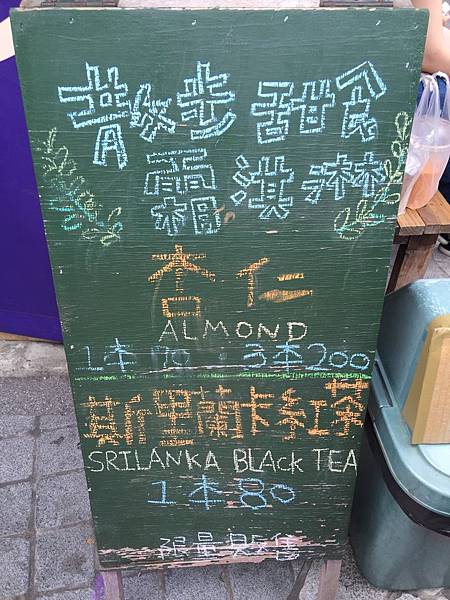 散步甜食
霜淇淋
杏仁
ALMOND
1本70 · 3本200
斯里蘭卡紅茶
SRILANKA BLACK TEA
1本80
限量販售